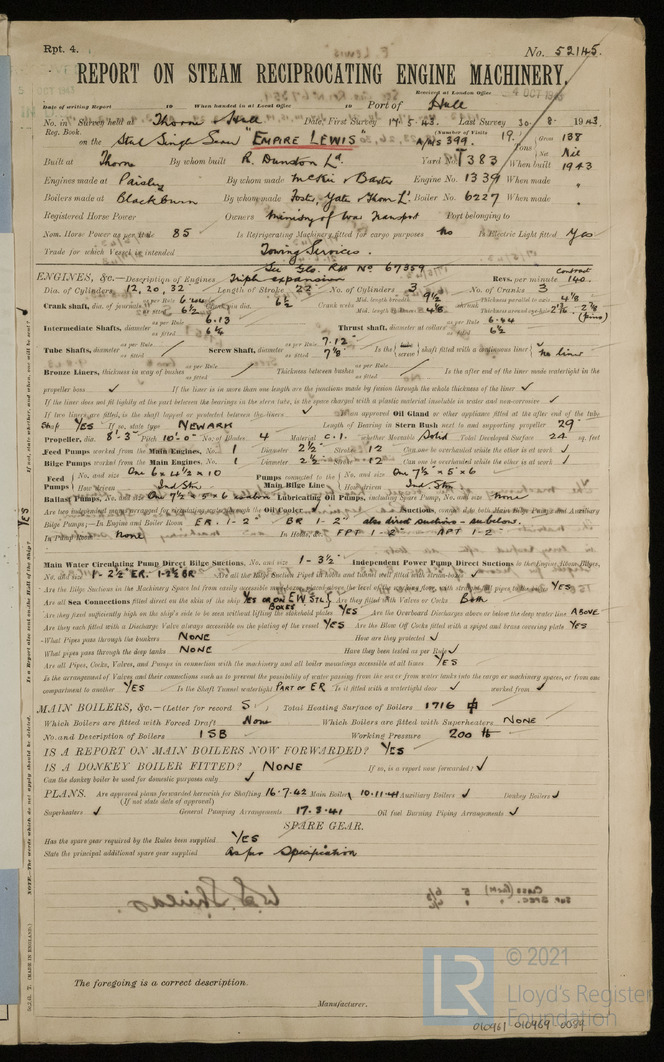 Rpt. 4. No. 52145.
REPORT ON STEAM RECIPROCATING ENGINE MACHINERY.
Received at London Office 4 OCT
Date of writing Report 19 When handed in at Local Office 19 Port of Hull
No. in Survey held at Thorne & Hull Date, First Survey 17.5.43. Last Survey 30.8.1943
Reg. Book. (Number of Visits 19.)
on the Stal Single Screw "EMPIRE LEWIS" A/MS 399. Tons Gross 138 Net Nil
Built at Thorne By whom built R. Dunston Ld. Yard No. T383 When built 1943
Engines made at Paisley By whom made McKie & Baxter Engine No. 1339 When made "
Boilers made at Blackburn By whom made Foster, Yates & Thom Ld. Boiler No. 6227 When made "
Registered Horse Power Owners Ministry of War Transport Port belonging to
Nom. Horse Power as per Rule 85 Is Refrigerating Machinery fitted for cargo purposes No Is Electric Light fitted Yes
Trade for which Vessel is intended Towing Services.
See Gls. Rpt No. 67357
ENGINES, &c.—Description of Engines Triple expansion Revs. per minute contract 140.
Dia. of Cylinders 12, 20, 32 Length of Stroke 22 No. of Cylinders 3 No. of Cranks 3
Crank shaft, dia. of journals as per Rule 6.44 as fitted 6½ Crank pin dia. 6½ Crank webs Mid. length breadth 9½ Mid. length thickness 4⅛ shrunk Thickness parallel to axis 4⅛ Thickness around eye-hole
Intermediate Shafts, diameter as per Rule 6.13 as fitted 6¼ Thrust shaft, diameter at collars as per Rule 6.44 as fitted 6½
Tube Shafts, diameter as per Rule as fitted Screw Shaft, diameter as per Rule 7.12 as fitted 7⅞ Is the screw shaft fitted with a continuous liner No liner
Bronze Liners, thickness in way of bushes as per Rule as fitted Thickness between bushes as per Rule as fitted Is the after end of the liner made watertight in the
propeller boss ✓ If the liner is in more than one length are the junctions made by fusion through the whole thickness of the liner ✓
If the liner does not fit tightly at the part between the bearings in the stern tube, is the space charged with a plastic material insoluble in water and non-corrosive ✓
If two liners are fitted, is the shaft lapped or protected between the liners ✓ Is an approved Oil Gland or other appliance fitted at the after end of the tube
shaft YES If so, state type NEWARK Length of Bearing in Stern Bush next to and supporting propeller 29"
Propeller, dia. 8'-3" Pitch 10'-0" No. of Blades 4 Material C.I. whether Moveable Solid Total Developed Surface 24 sq. feet
Feed Pumps worked from the Main Engines, No. 1 Diameter 2½" Stroke 12" Can one be overhauled while the other is at work ✓
Bilge Pumps worked from the Main Engines, No. 1 Diameter 2½" Stroke 12" Can one be overhauled while the other is at work ✓
Feed Pumps No. and size One 6 x 4½ x 10 How driven Ind. Stm. Pumps connected to the Main Bilge Line No. and size One 7½" x 5" x 6 How driven Ind. Stm.
Ballast Pumps, No. and size One 7½ x 5 x 6 Lubricating Oil Pumps, including Spare Pump, No. and size None
Are two independent means arranged for circulating water through the Oil Cooler Suctions, connected to both Main Bilge Pumps and Auxiliary
Bilge Pumps;—In Engine and Boiler Room ER. 1-2" BR 1-2" also direct suctions as below.
In Pump Room None In Holds, &c. FPT 1-2" APT 1-2"
Main Water Circulating Pump Direct Bilge Suctions, No. and size 1-3½" Independent Power Pump Direct Suctions to the Engine Room Bilges,
No. and size 1-2½" ER. 1-2½" BR Are all the Bilge Suction Pipes in holds and tunnel well fitted with strum-boxes
Are the Bilge Suctions in the Machinery Space led from easily accessible mud-boxes, placed above the level of the working floor, with straight tail pipes to the bilges YES
Are all Sea Connections fitted direct on the skin of the ship YES OR ON EW STL BOXES Are they fitted with Valves or Cocks Both
Are they fixed sufficiently high on the ship's side to be seen without lifting the stokehold plates YES Are the Overboard Discharges above or below the deep water line ABOVE
Are they each fitted with a Discharge Valve always accessible on the plating of the vessel YES Are the Blow Off Cocks fitted with a spigot and brass covering plate YES
What Pipes pass through the bunkers NONE How are they protected ✓
What pipes pass through the deep tanks NONE Have they been tested as per Rule ✓
Are all Pipes, Cocks, Valves, and Pumps in connection with the machinery and all boiler mountings accessible at all times YES
Is the arrangement of Valves and their connections such as to prevent the possibility of water passing from the sea or from water tanks into the cargo or machinery spaces, or from one
compartment to another YES Is the Shaft Tunnel watertight PART OF ER Is it fitted with a watertight door ✓ worked from ✓
MAIN BOILERS, &c.—(Letter for record S) Total Heating Surface of Boilers 1716
Which Boilers are fitted with Forced Draft None Which Boilers are fitted with Superheaters NONE
No. and Description of Boilers 1 SB Working Pressure 200 lb
IS A REPORT ON MAIN BOILERS NOW FORWARDED? YES
IS A DONKEY BOILER FITTED? NONE If so, is a report now forwarded? ✓
Can the donkey boiler be used for domestic purposes only ✓
PLANS. Are approved plans forwarded herewith for Shafting 16.7.42 Main Boilers 10.11.41 Auxiliary Boilers ✓ Donkey Boilers ✓
(If not state date of approval)
Superheaters ✓ General Pumping Arrangements 17.3.41 Oil fuel Burning Piping Arrangements ✓
SPARE GEAR.
Has the spare gear required by the Rules been supplied YES
State the principal additional spare gear supplied As per Specification
The foregoing is a correct description.
Manufacturer.
© 2021
LR
Lloyd's Register
Foundation
010961 010969 0089